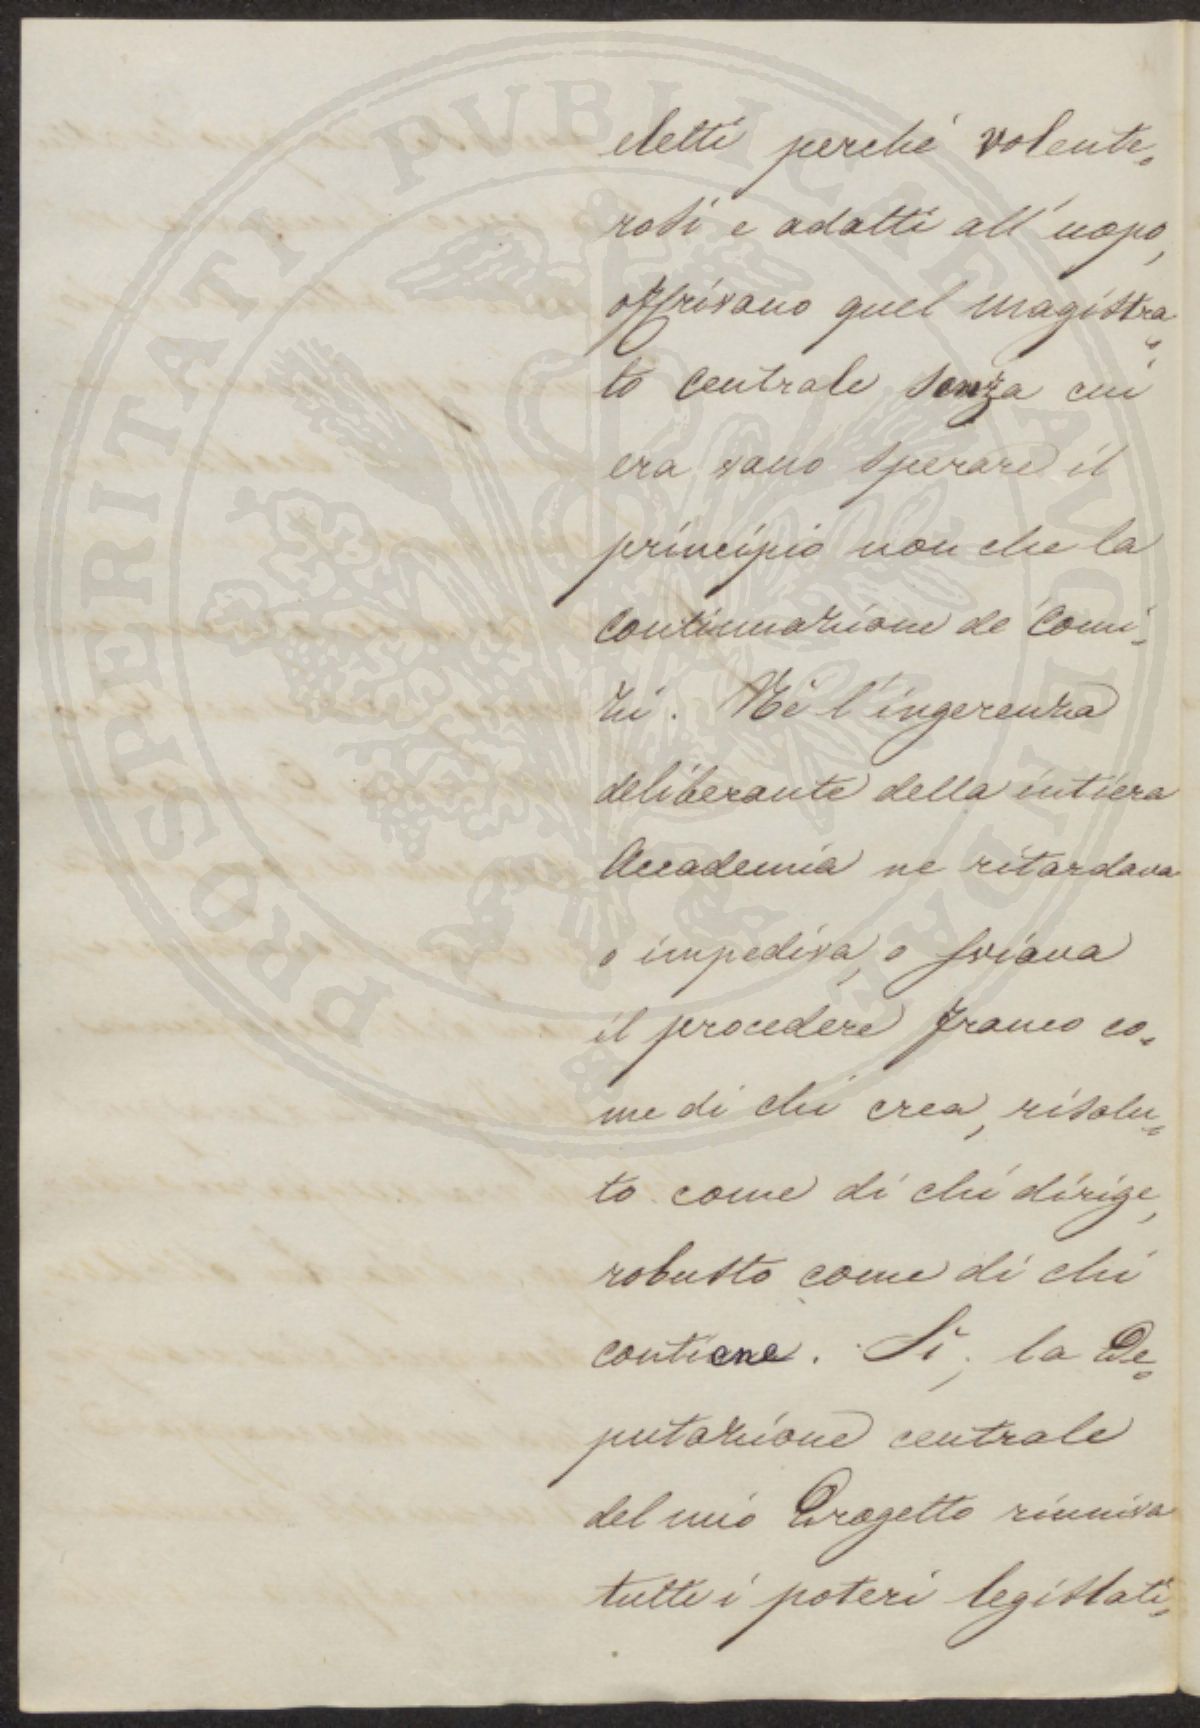 eletti perchè volente=
rosi e adatti all'uopo,
offrivano quel magistra=
to centrale senza cui
era vano sperare il
principio non che la
continuazione de' Comi=
zii. Nè l'ingerenza
deliberante della intiera
Accademia ne ritardava
o impediva, o sviava
il procedere franco co=
me di chi crea, risolu=
to come di chi dirige,
robusto come di chi
contiene. Sì, la De=
putazione centrale
del mio Progetto riuniva
tutti i poteri legislati=
PROSPERITATI PVBLICAE AVGENDAE